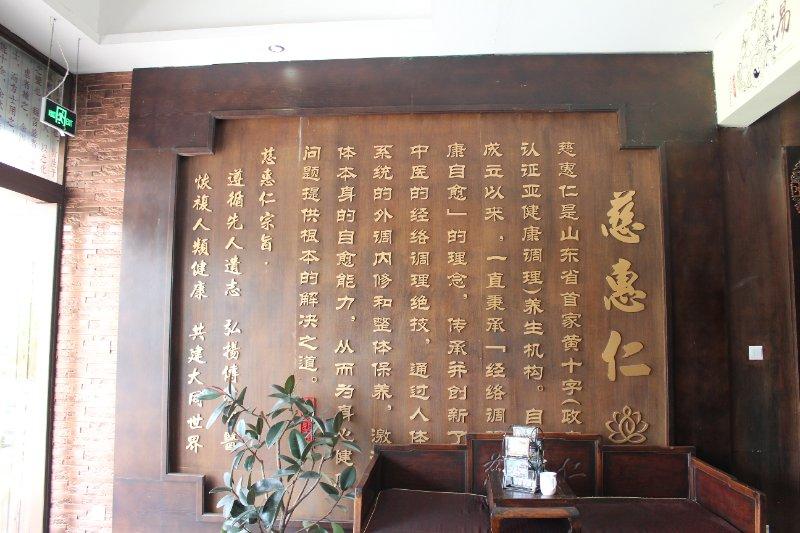 慈惠仁
慈惠仁是山东省首家黄十字(政
认证亚健康调理)养生机构。自
成立以来，一直秉承「经络调
康自愈」的理念，传承并创新了
中医的经络调理绝技，通过人体
系统的外调内修和整体保养，激
体本身的自愈能力，从而为身心健
问题提供根本的解决之道。
慈惠仁宗旨·
遵循先人遗志 弘揚傳 醫
恢複人類健康 共建大同世界